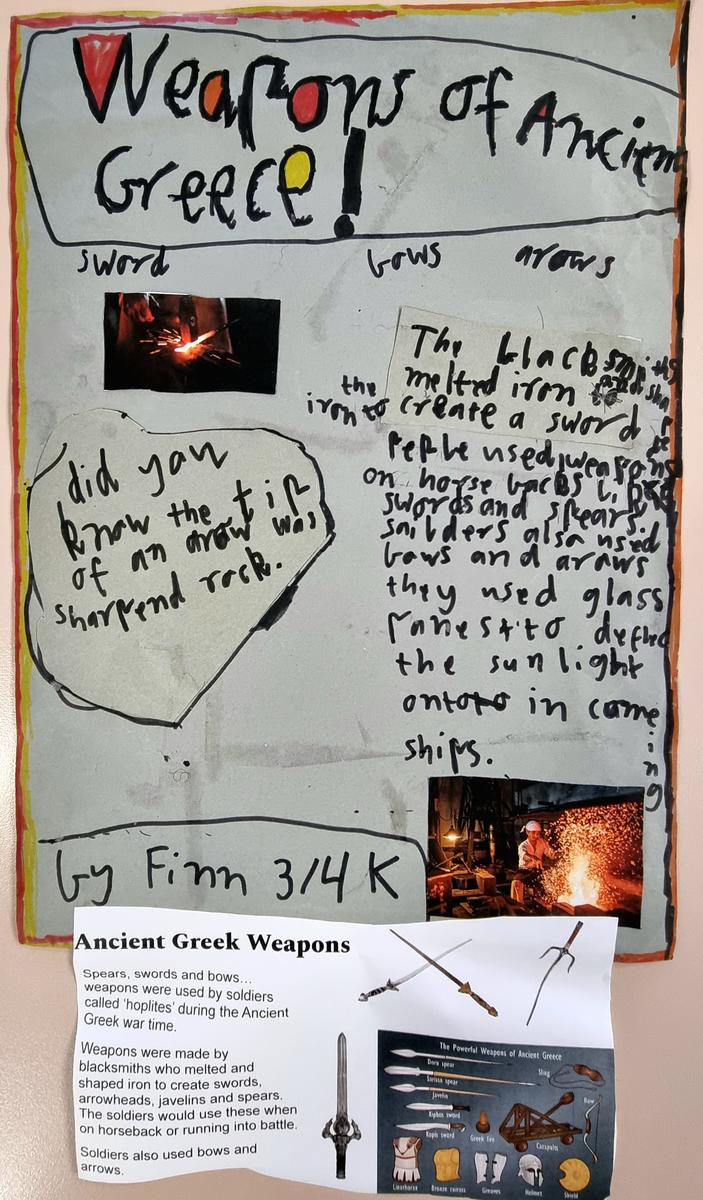 Weapons of Ancient
Greece!
sword bows arows
The blacksmiths
melted iron and sha
pe
the
iron to create a sword
Peple used weapons
on horse backs like
swords and spears.
soilders also used
bows and arows
they used glass
panes to deflec
the sun light
onto in come
ing
ships.
did you
know the tip
of an arow was
sharpend rock.
by Finn 3/4 K
Ancient Greek Weapons
Spears, swords and bows...
weapons were used by soldiers
called 'hoplites' during the Ancient
Greek war time.
Weapons were made by
blacksmiths who melted and
shaped iron to create swords,
arrowheads, javelins and spears.
The soldiers would use these when
on horseback or running into battle.
Soldiers also used bows and
arrows.
The Powerful Weapons of Ancient Greece
Doru spear
Sling
Sarissa spear
Javelin
Bow
Xiphos sword
Kopis sword
Greek fire
Catapults
Linothorax
Bronze cuirass
Greaves
Helmet
Shield